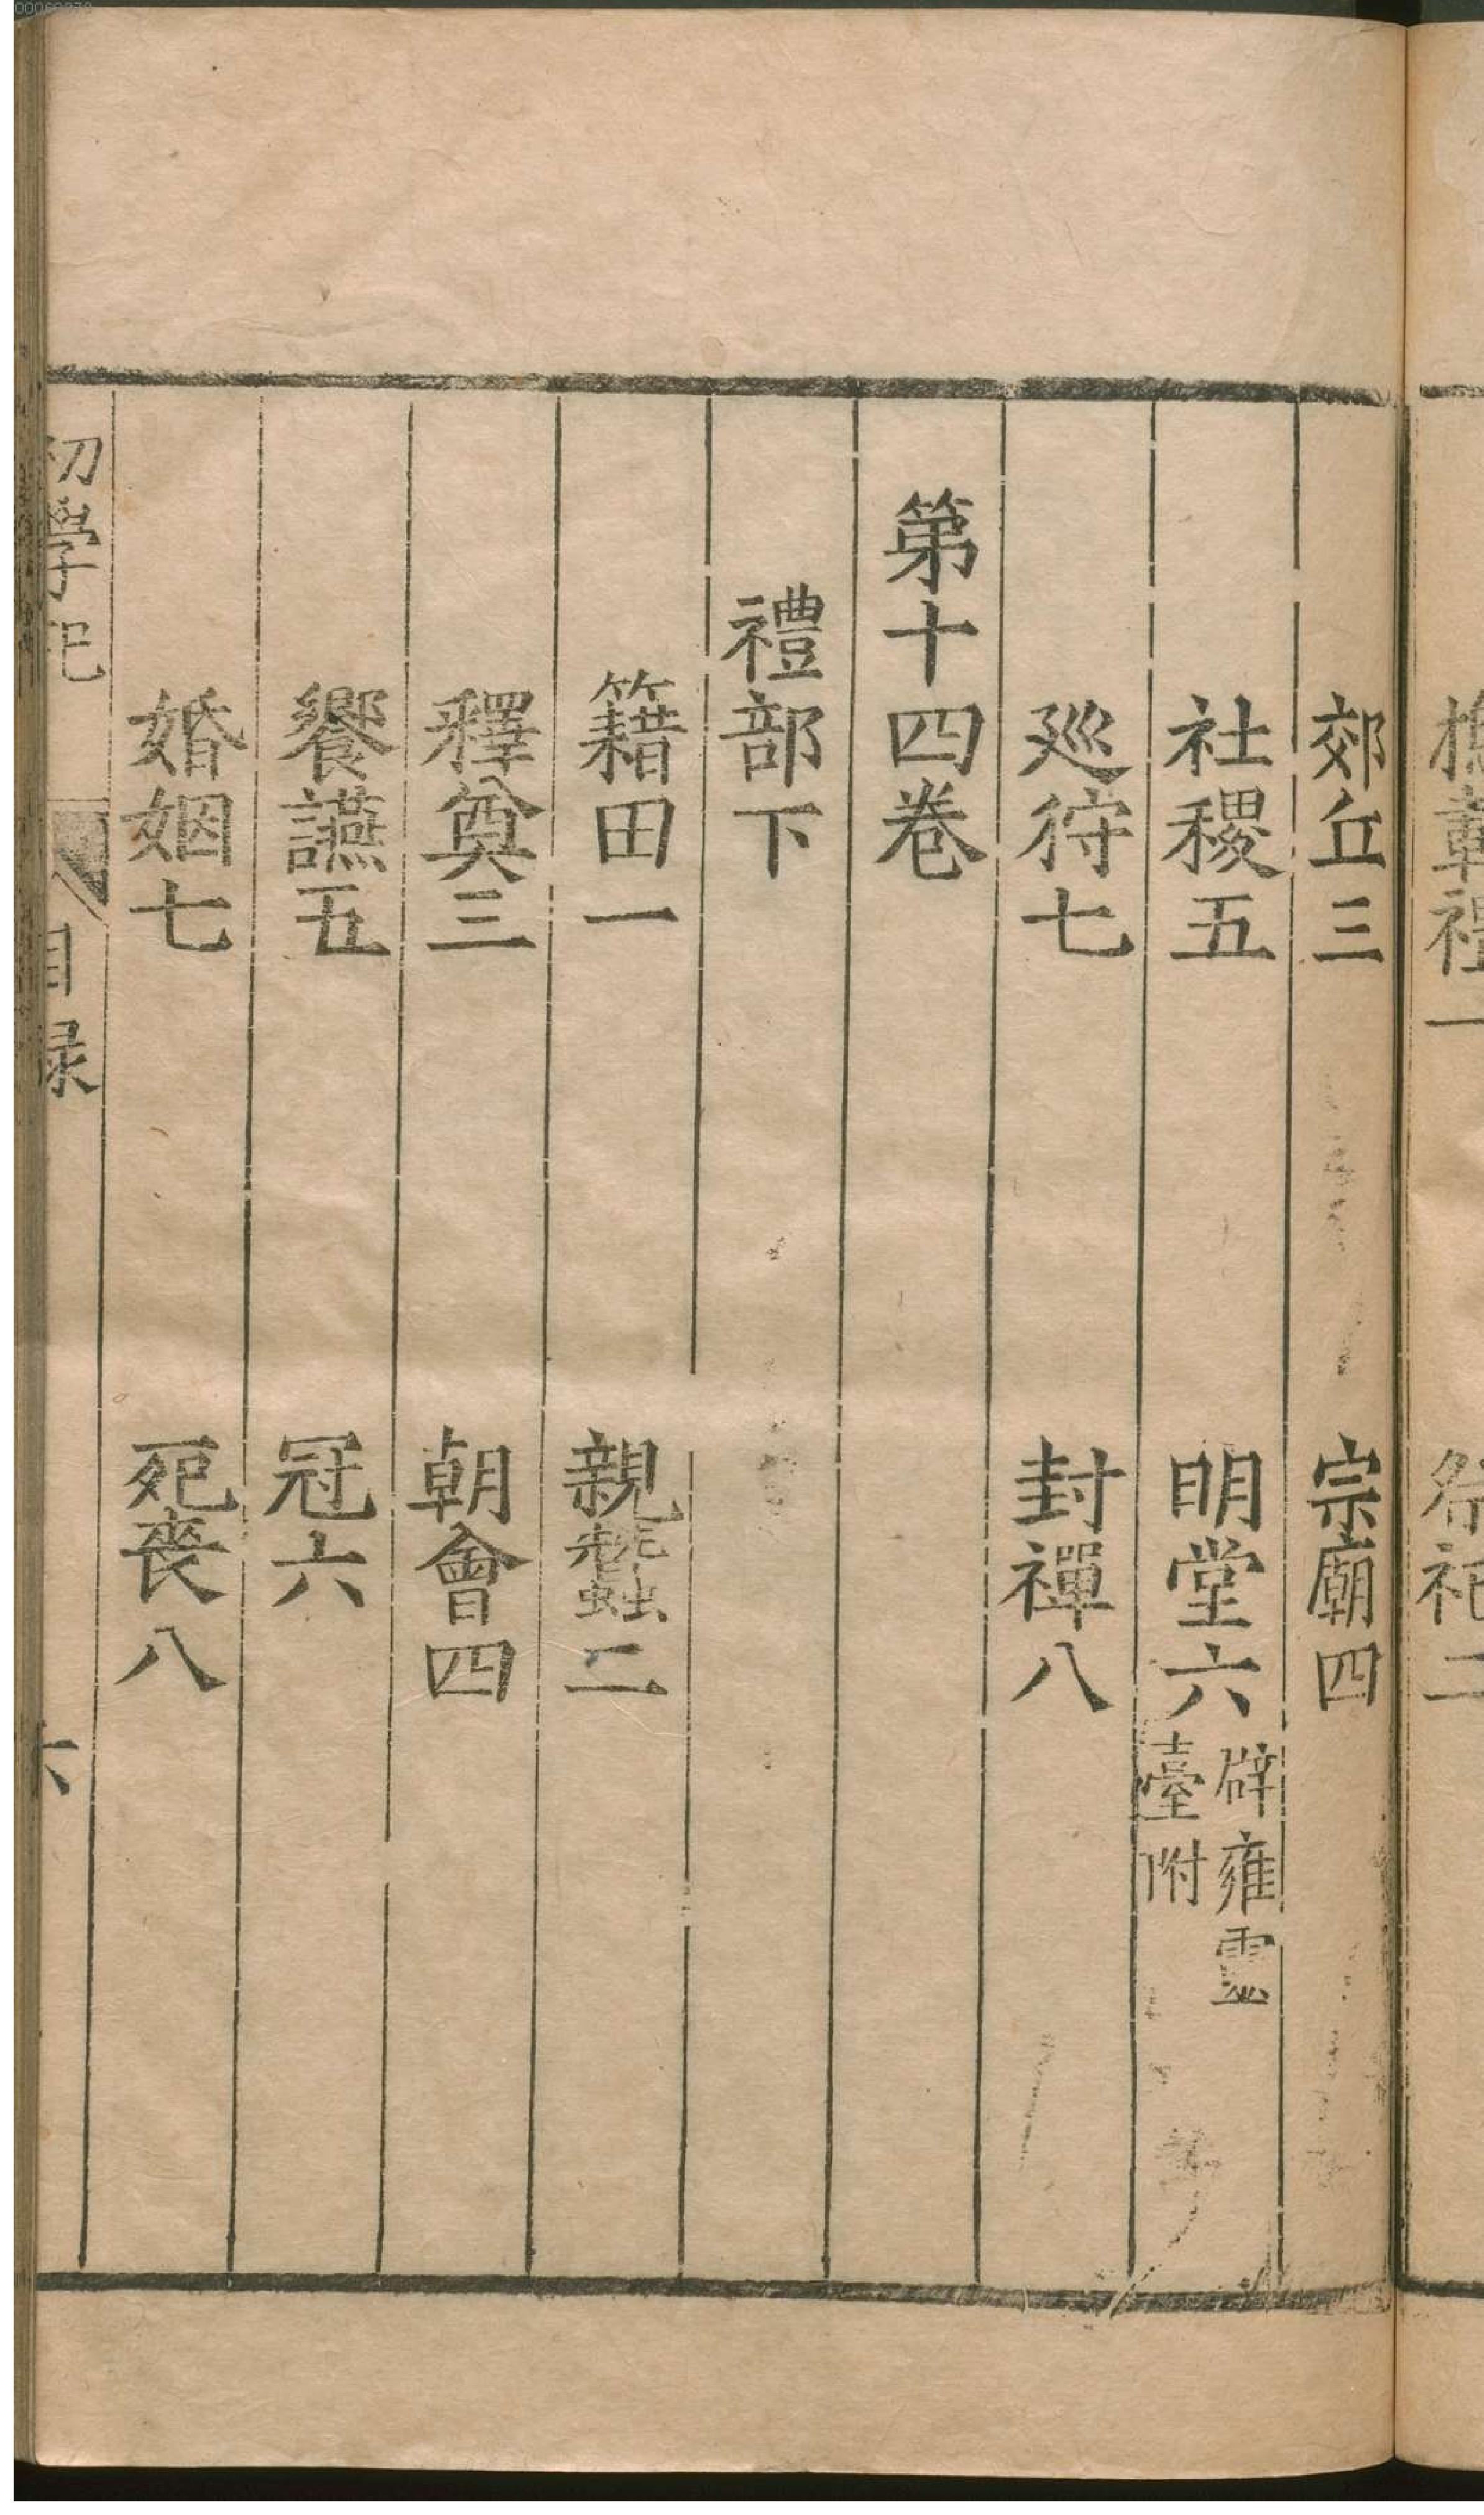 總載禮一　祭祀二
郊丘三　宗廟四
社稷五　明堂六辟雍靈臺附
廵狩七　封禪八
第十四卷
禮部下
籍田一　親蠶二
釋奠三　朝會四
饗讌五　冠六
婚姻七　死喪八
初學記　目録　六